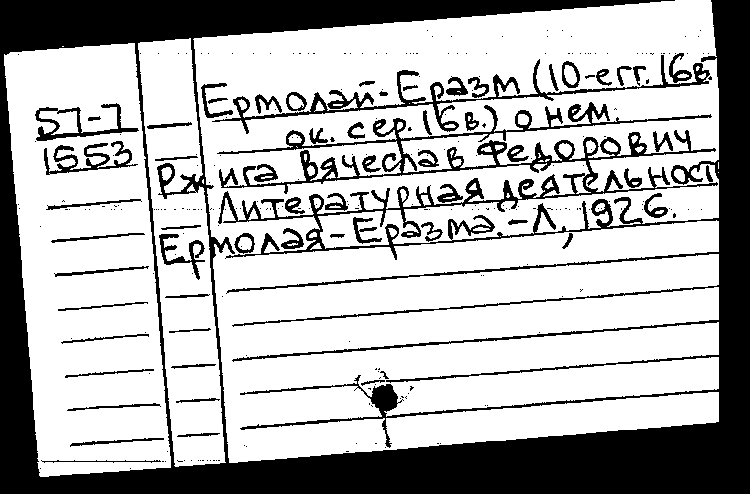 57-7
1553
Ермолай-Еразм (10-егг. 16в.-
ок. сер. 16в.), о нем.
Ржига, Вячеслав Федорович
Литературная деятельность
Ермолая-Еразма. - Л., 1926.